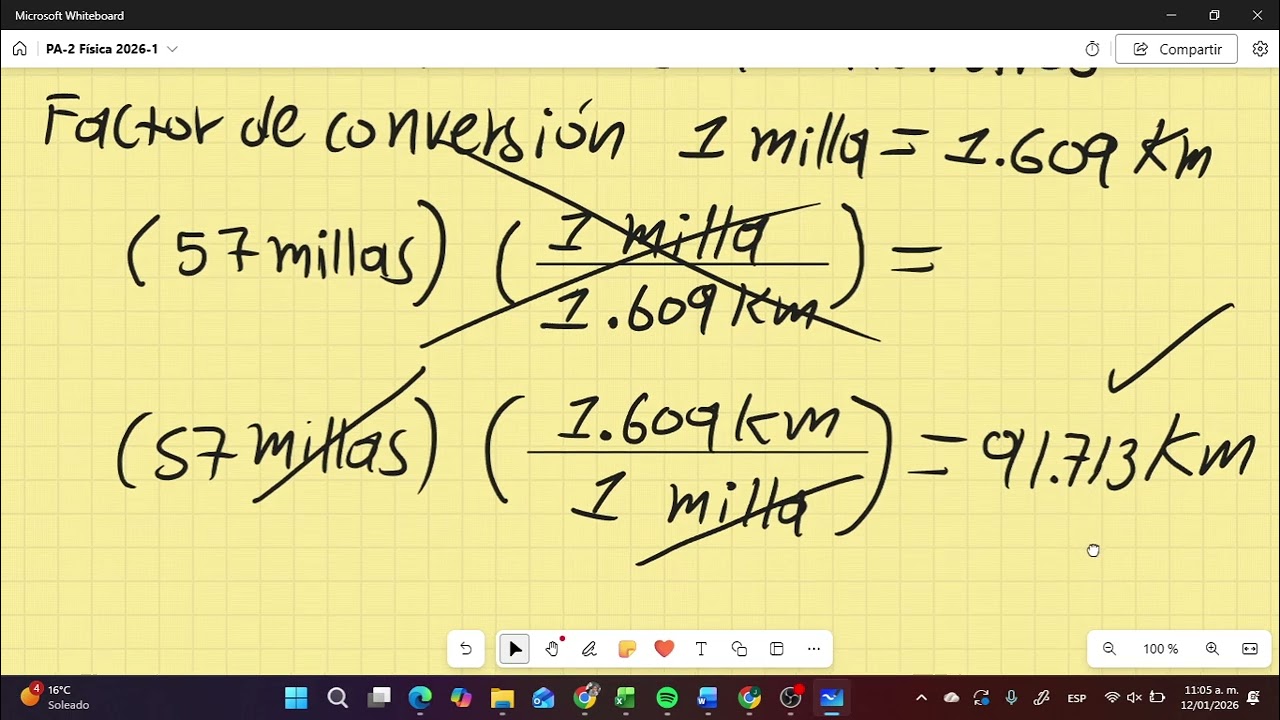 Microsoft Whiteboard
PA-2 Física 2026-1
Compartir
Factor de conversión 1 milla = 1.609 Km
(57 millas) (1 milla / 1.609 Km) =
(57 millas) (1.609 km / 1 milla) = 91.713 Km
T
100 %
4
16°C
Soleado
ESP
11:05 a. m.
12/01/2026